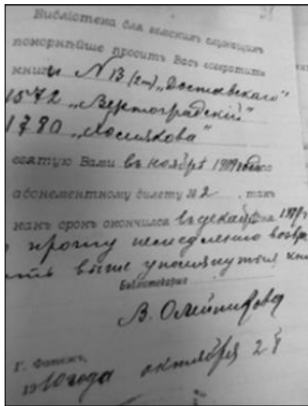 Библіотека для земскихъ служащихъ
покорнѣйше проситъ Васъ возвратить
книги N 13 (2т) „Достоевскаго"
1572 „Вертоградскій"
1780
взятую Вами въ ноябрѣ 1909 года
абонементному билету № 2, такъ
какъ срокъ окончился въ декабрѣ 1909 г
прошу немедленно возвра
тить выше упомянутыя кн
Библіотекарь
В. Олейникова
Г. Фатежъ,
1910 года октября 2